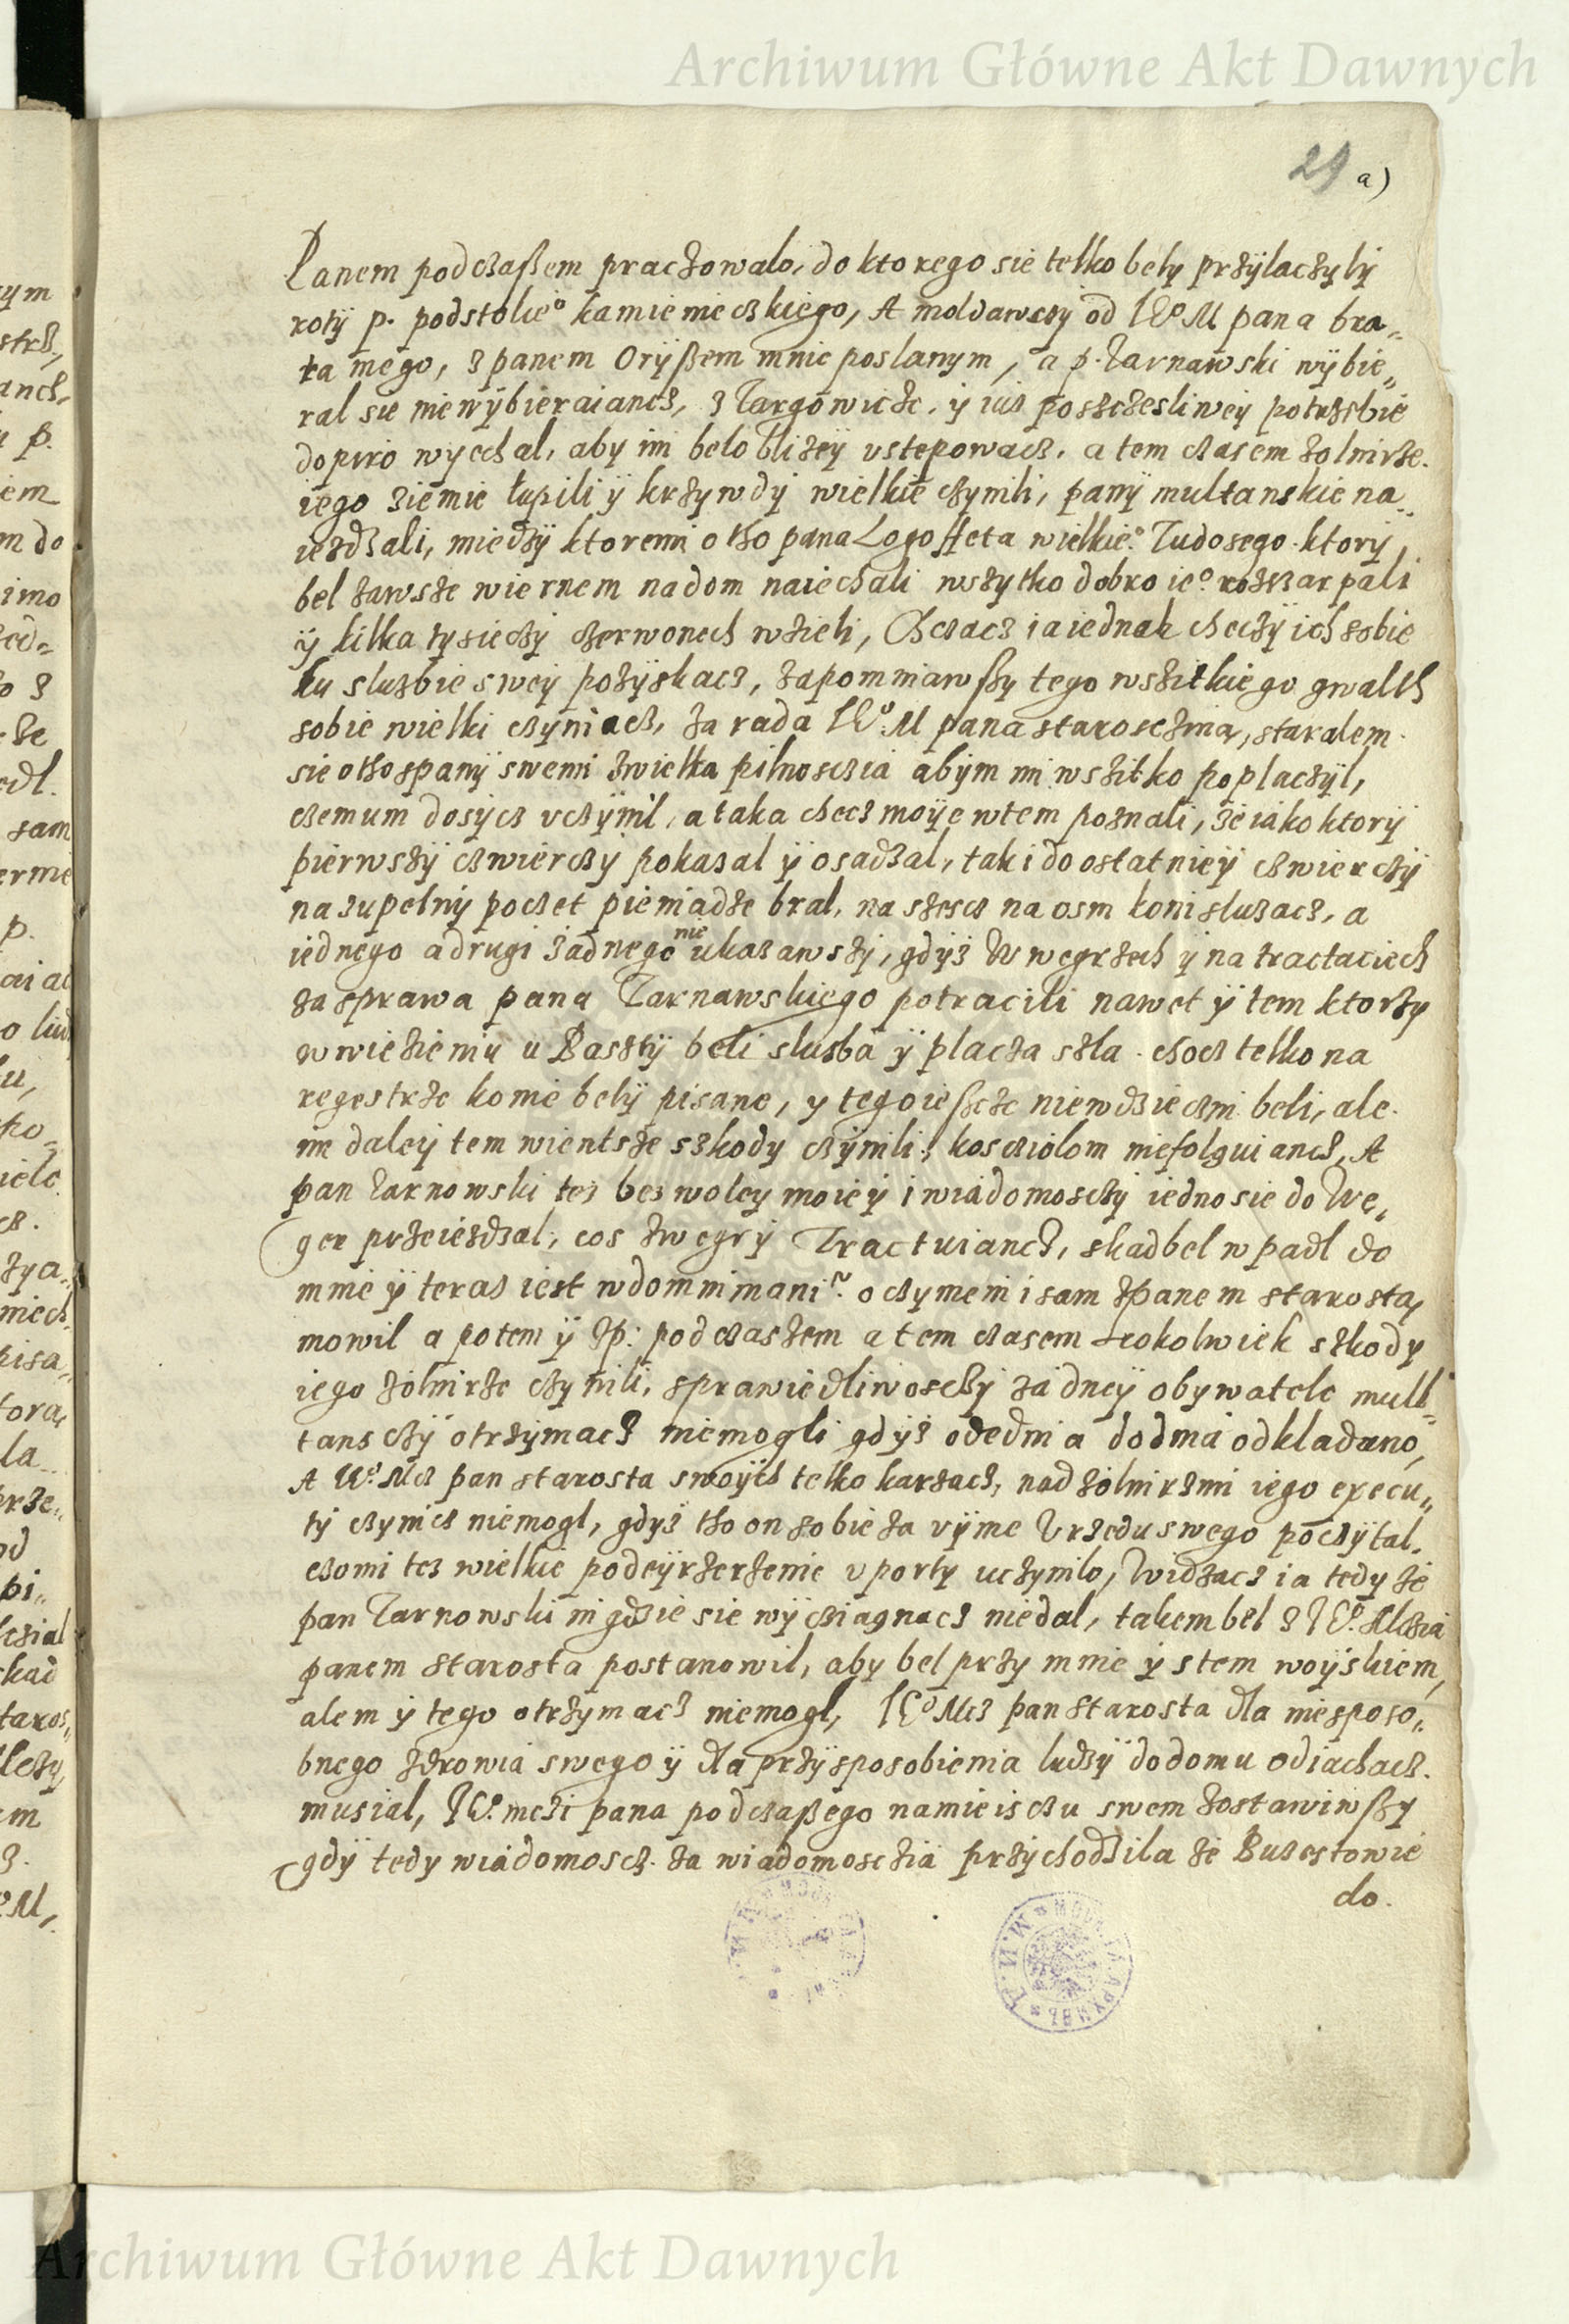 Archiwum Główne Akt Dawnych
29 a)
Panem podczaßem praczowalo, do ktorego sie telko bely przÿlaczyly
rotÿ p. podstolie° kamienieczkiego, A moldawczÿ od JE°M pana bra„
ta mego, z panem Orÿßem mnie poslanym, a p. Tarnawski wÿbie„
ral sie niewÿbieraiancz, z Targowicze, ÿ iuz poszczesliweÿ potrzebie
dopiro wyechal, aby im belo bliżeÿ vstepowacz, a tem czasem żolnirze
iego ziemie łupili ÿ krzywdÿ wielkie czynili, panÿ multanskie na„
iezdzali, miedzÿ ktoremi otho pana Logoffeta wielkie° Tudosego ktorÿ
bel zawsze wiernem na dom naiechali wszytko dobro ie° rozszarpali
ÿ kilka tysieczÿ czerwonech wzieli, Chczacz ia iednak checzÿ ich sobie
ku sluzbie sweÿ pozÿskacz, zapomniawßy tego wszitkiego gwalth
sobie wielki czÿniacz, za rada JE°M pana staroscżina, staralem
sie otho spanÿ swemi zwielka pilnosczia abÿm im wszitko poplaczÿl,
czemum dosÿcz vczÿnil, a taka checz moÿe wtem poznali, że iako ktorÿ
pierwszÿ czwierczÿ pokazal ÿ osadzal, tak i do ostatnieÿ czwierczÿ
na zupelnÿ poczet pieniadze bral, na szescz na osm koni sluzacz, a
iednego a drugi żadnego nie ukazawszÿ, gdÿz w wegrzech ÿ na tractaciech
za sprawa pana Tarnawskiego potracili nawet ÿ tem ktorzy
w wiezieniu u Basztÿ beli sluzba ÿ placza szla chocz telko na
regestrze konie belÿ pisane, y tego ießcze niewdzieczni beli, ale
im daleÿ tem wientsze szkody czÿnili, kosciolom niefolguiancz, A
pan Tarnowski tez bez woley moieÿ i wiadomosczÿ iedno sie do We„
ger przeiezdzal, cos z wegrÿ Tractuiancz, skad bel wpadl do
mnie ÿ teraz iest w domnimani~ o czymem i sam z panem starostą
mowil a potem ÿ z p: podczaszem a tem czasem cokolwiek szkody
iego żolnirze czynili, sprawiedliwosczÿ żadneÿ obywatele mull„
tansczÿ otrzÿmacz niemogli gdÿz odednia do dnia odkladano,
A W°. Mcz pan starosta swoÿch telko karzacz, nad żolnirzmi iego execu„
tÿ czynicz niemogl, gdyz tho on sobie za vÿme Vrzedu swego poczÿtal,
czo mi tez wielkie podeÿrzerzenie v porty uczynilo, Widzacz ia tedy że
pan Tarnowski nigdzie sie wÿcziagnacz niedal, takem bel z JE°. Mczia
panem starosta postanowil, aby bel przy mnie ÿ stem woÿskiem,
alem ÿ tego otrzymacz niemogl, JE°Mcz pan starosta dla niesposo„
bnego zdrowia swego ÿ dla przÿsposobienia ludzÿ do domu odiachacz
musial, JE°. mczi pana podczaßego namieisczu swem zostawiwßy
gdÿ tedy wiadomoscz za wiadomosczia przÿchodzila że Buzestowie
do
Archiwum Główne Akt Dawnych